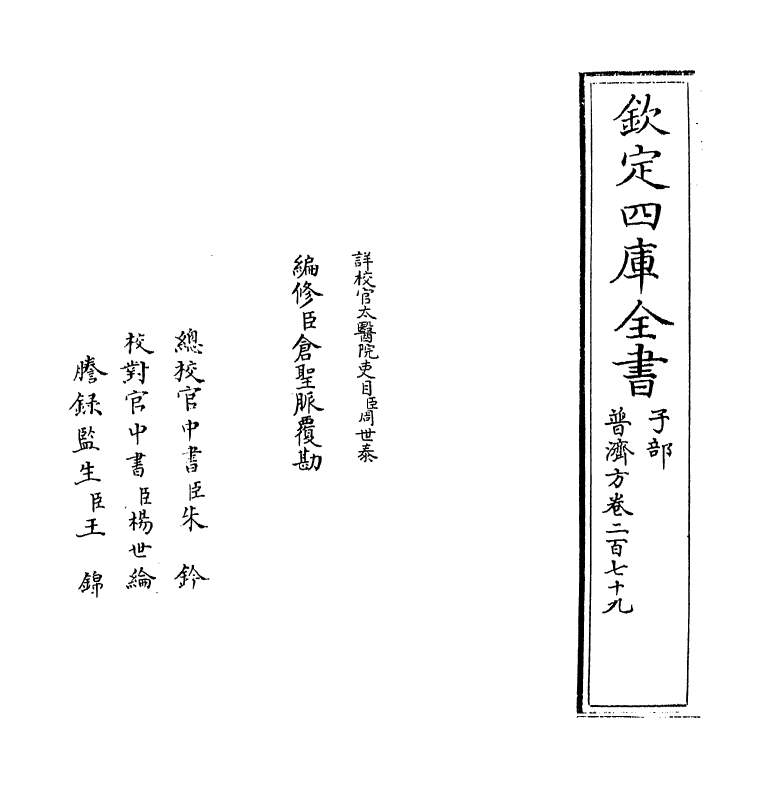 欽定四庫全書
子部
普濟方卷二百七十九
詳校官太醫院吏目臣周世泰
編修臣倉聖脈覆勘
總校官中書臣朱鈐
校對官中書臣楊世綸
謄録監生臣王錦